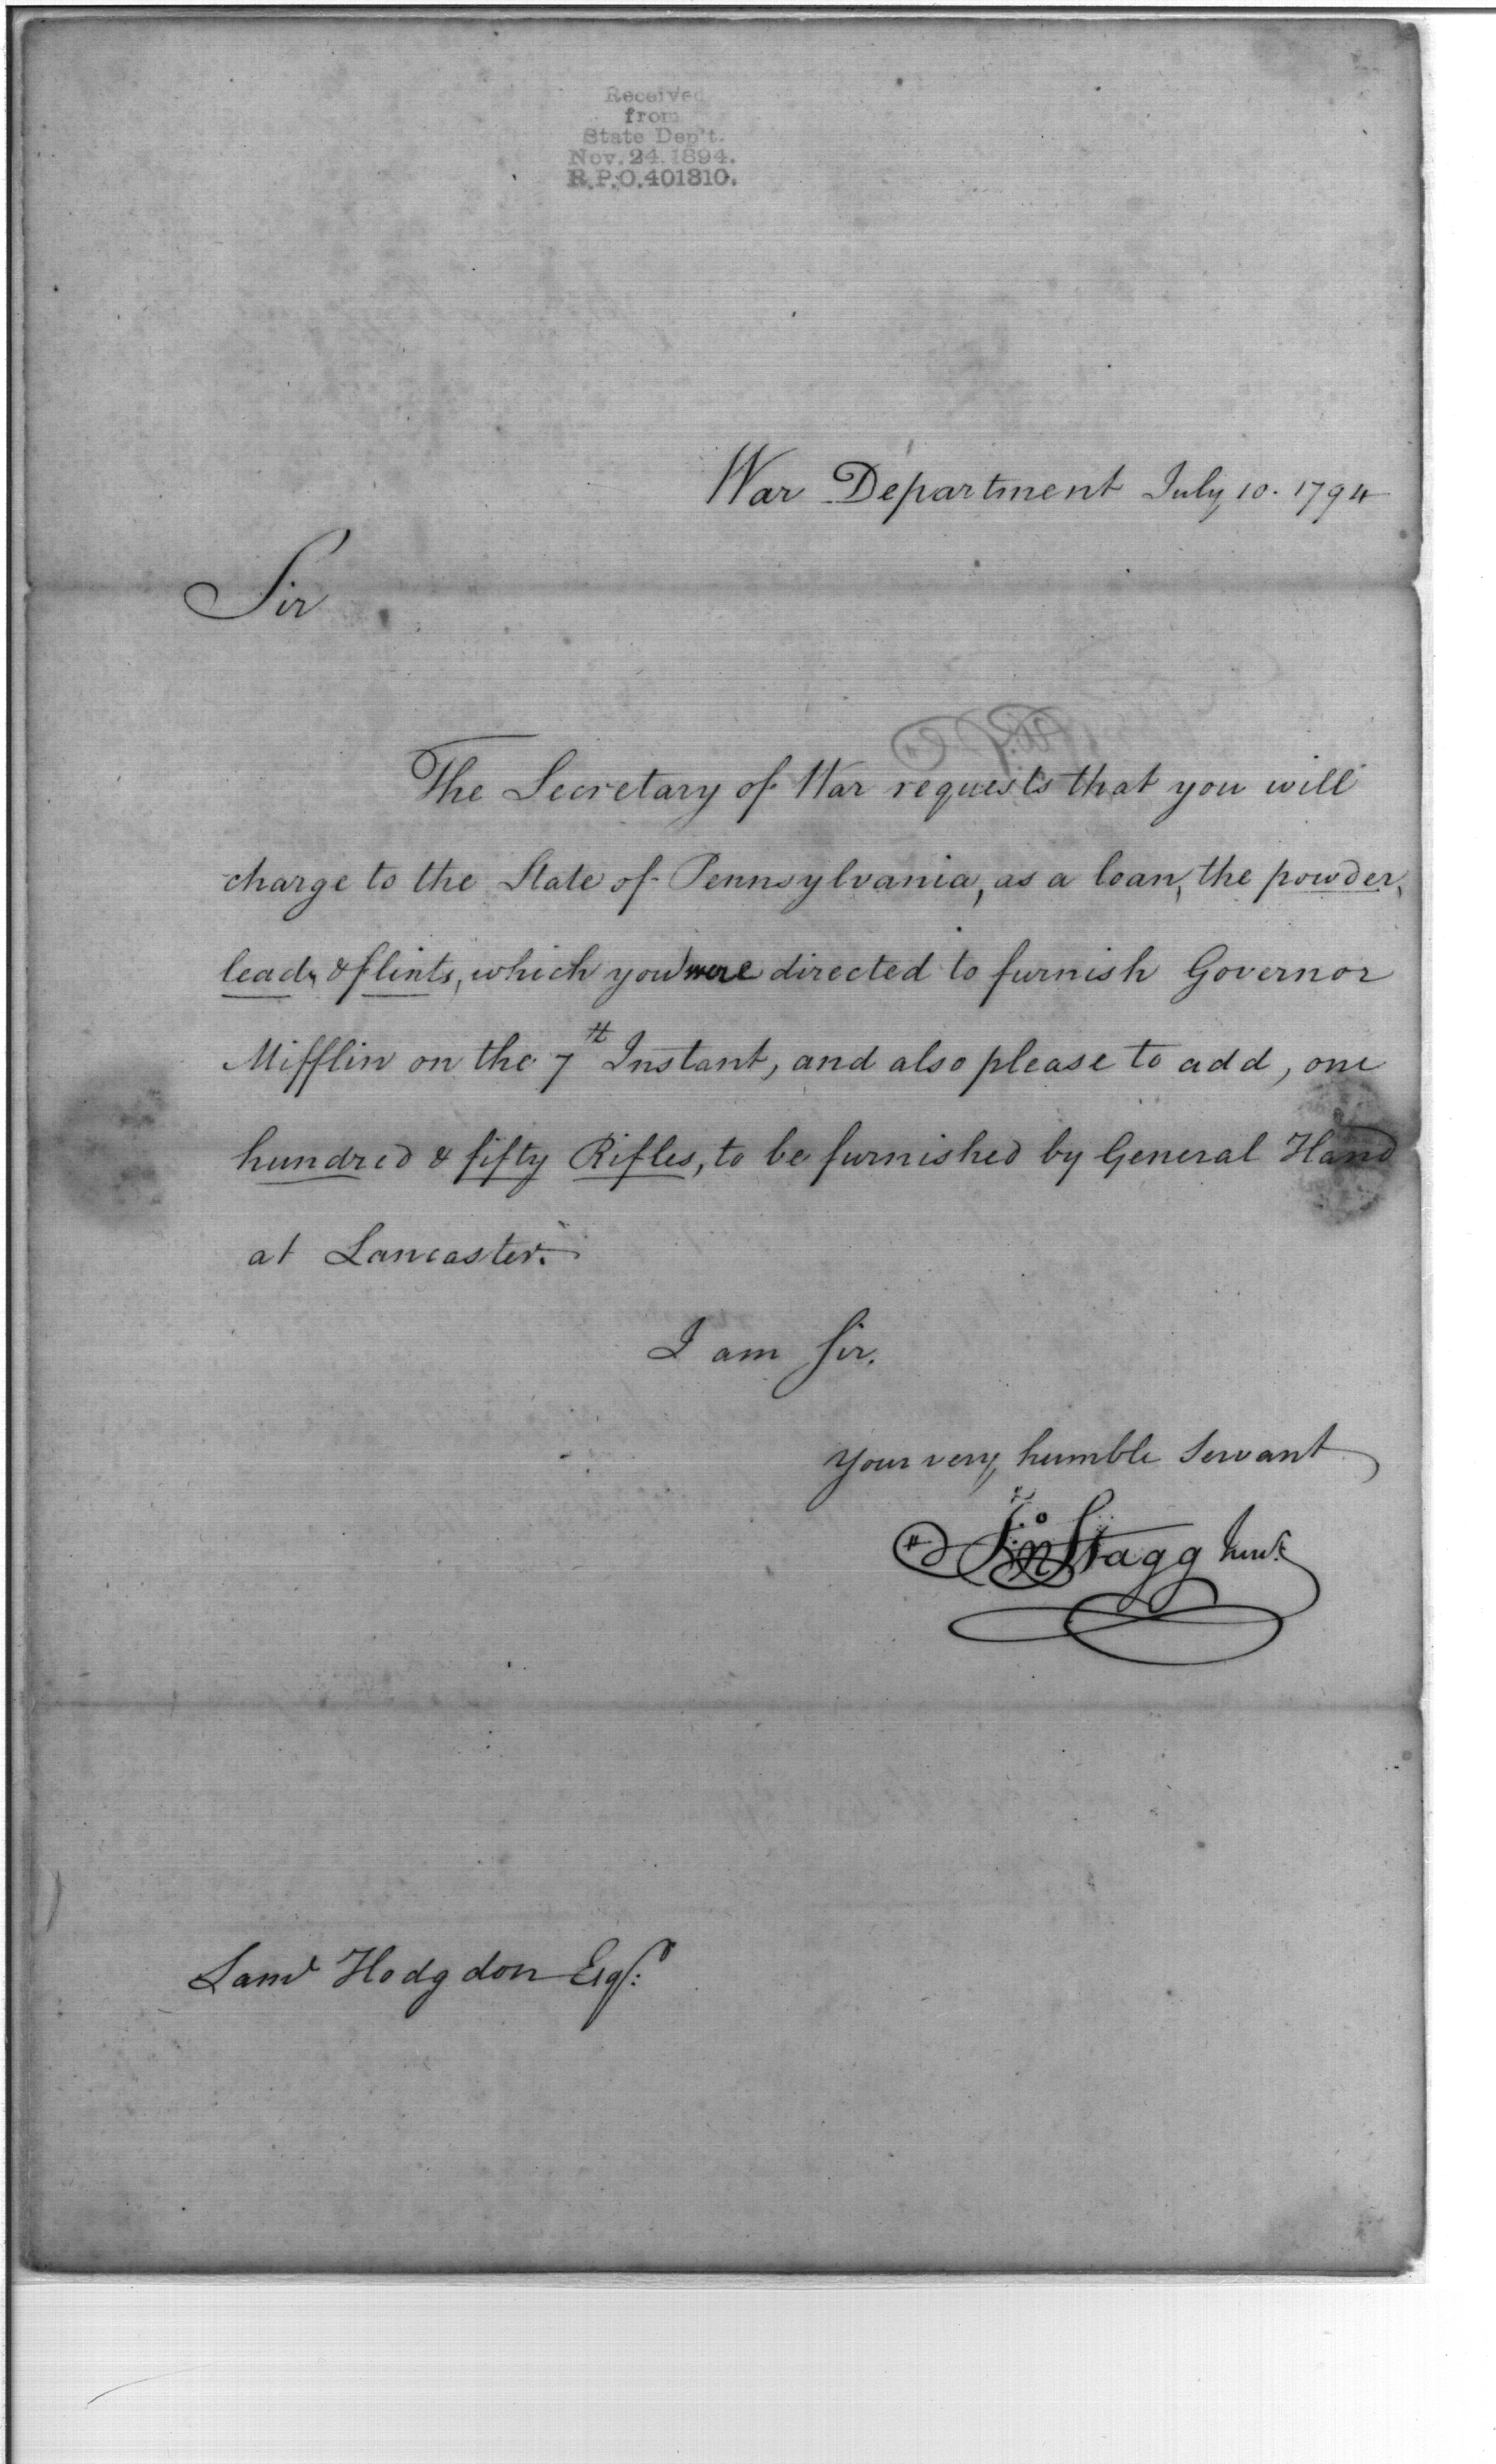 Received
from
State Dep't.
Nov. 24. 1894.
R.P.O. 401810.
War Department July 10. 1794
Sir
The Secretary of War requests that you will
charge to the State of Pennsylvania, as a loan, the powder,
lead, & flints, which you were directed to furnish Governor
Mifflin on the 7th Instant, and also please to add, one
hundred & fifty Rifles, to be furnished by General Hand
at Lancaster.
I am Sir.
Your very humble Servant
Jno Stagg Junr.
Saml Hodgdon Esqr.